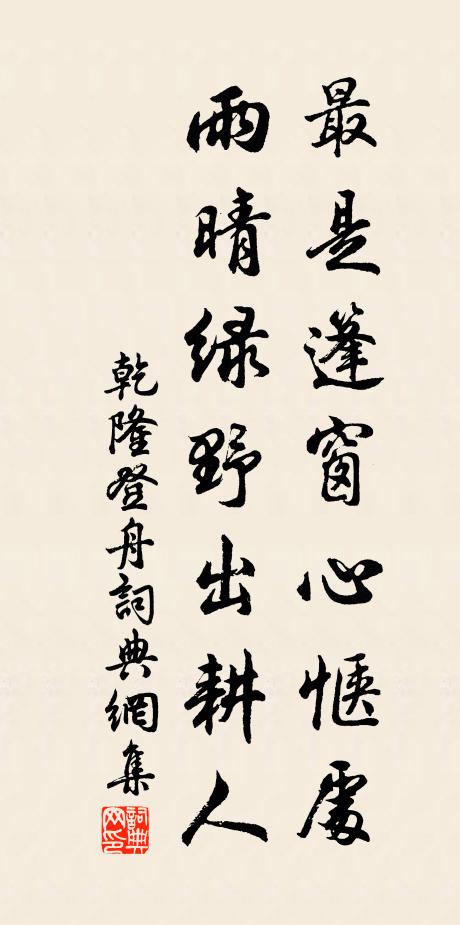 最是篷窗心愜處
雨晴綠野出耕人
乾隆登舟詞典網集
詞典网印